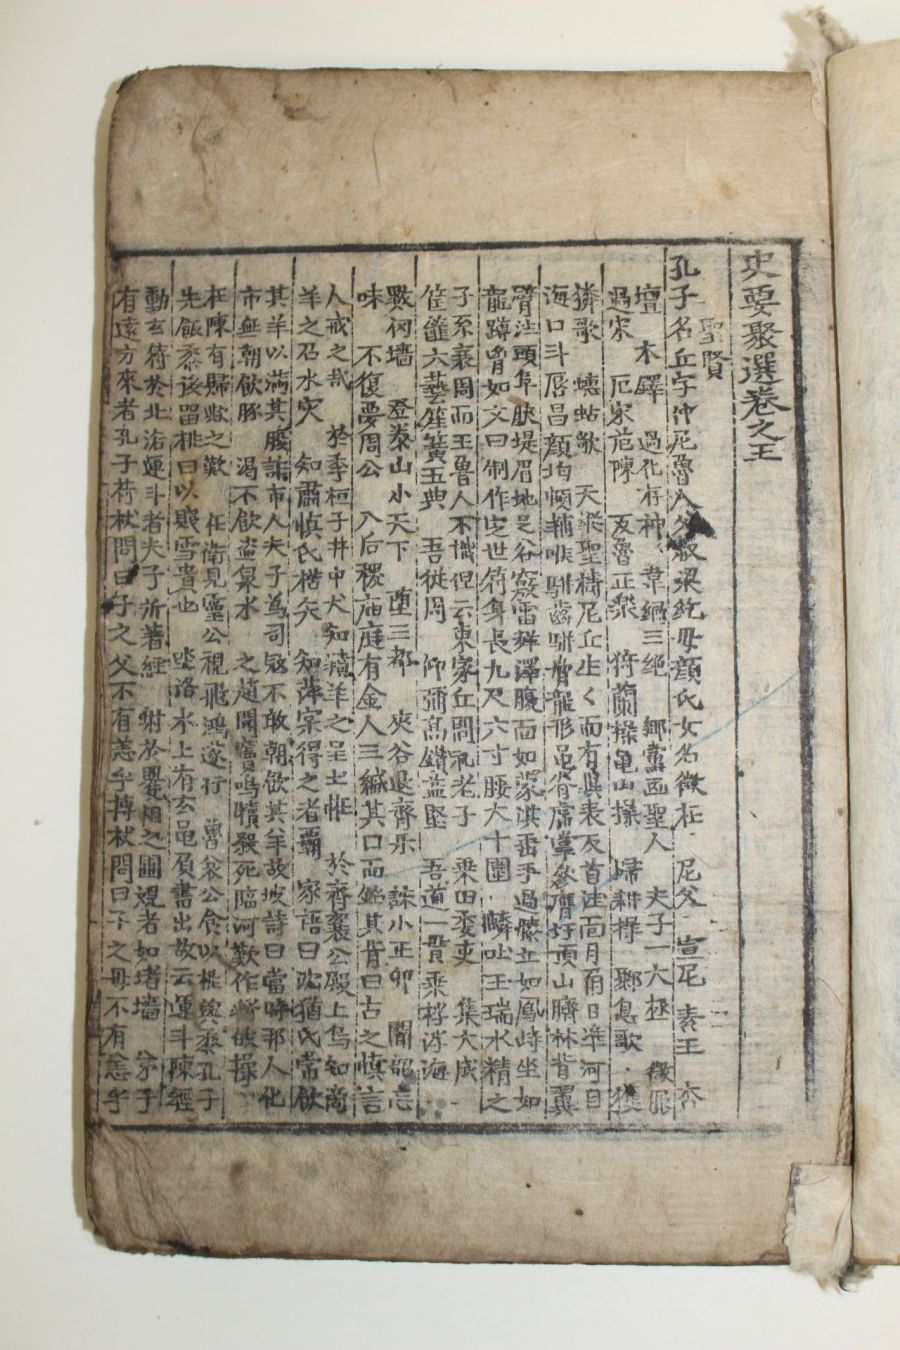 史要聚選卷之五
聖賢
孔子名丘字仲尼魯人父叔梁紇母顔氏女名徵在 尼父 宣尼 素王 杏
壇 木鐸 過化存神 韋編三絶 鄕黨畫聖人 夫子一太極 微服
過宋 厄宋危陳 反魯正樂 猗蘭操龜山操 歸耕操 息歌 獲
獜歌 蟪蛄歌 天縱聖 禱尼丘生生而有異表反首洼面月角日準河目
海口斗唇昌顔均頤輔喉騈齒 龍形龜脊虎掌 參膺圩頂山臍林背翼
臂注頭阜 堤眉地足谷竅雷聲澤腹 面如蒙淇 垂手過膝立如鳳峙坐如
龍蹲胷如文曰制作定世符身長九尺六寸腰大十圍 麟吐玉 水精之
子系衰周而王 魯人不識 云東家丘 問禮老子 乘田委吏 集大成
筐篚六藝笙簧五典 吾從周 仰彌高鑽益堅 吾道一貫 乘桴浮海
數仞墻 登泰山小天下 墮三都 夾谷退齊兵 誅小正卯 聞韶忘
味 不復夢周公 入后稷廟庭有金人三緘其口而銘其背曰古之愼言
人戒之哉 於季桓子井中犬知羵羊之 土怪 於齊襄公殿上鳥知商
羊之召水灾 知肅愼氏楛矢 知萍宗得之者霸 家語曰沈猶氏常飮
其羊以滿其腹詐市人夫子爲司寇不敢朝飮其羊故坡詩曰當時那人化
市無朝飮豚 渴不飮盜泉水 之趙聞竇鳴犢殺死臨河歎作 操
在陳有歸歟之歎 在衛見靈公視飛鴻遂行 魯哀公食以桃與黍孔子
先飯黍後 桃曰以賤雪貴也 洛水上有玄龜負書出故云運斗陳經
動玄符於北 運斗者夫子所著經 射於矍相之圃觀者如堵墻 弟子
有遠方來者孔子荷杖問曰子之父不有恙乎搏杖問曰子之母不有恙乎